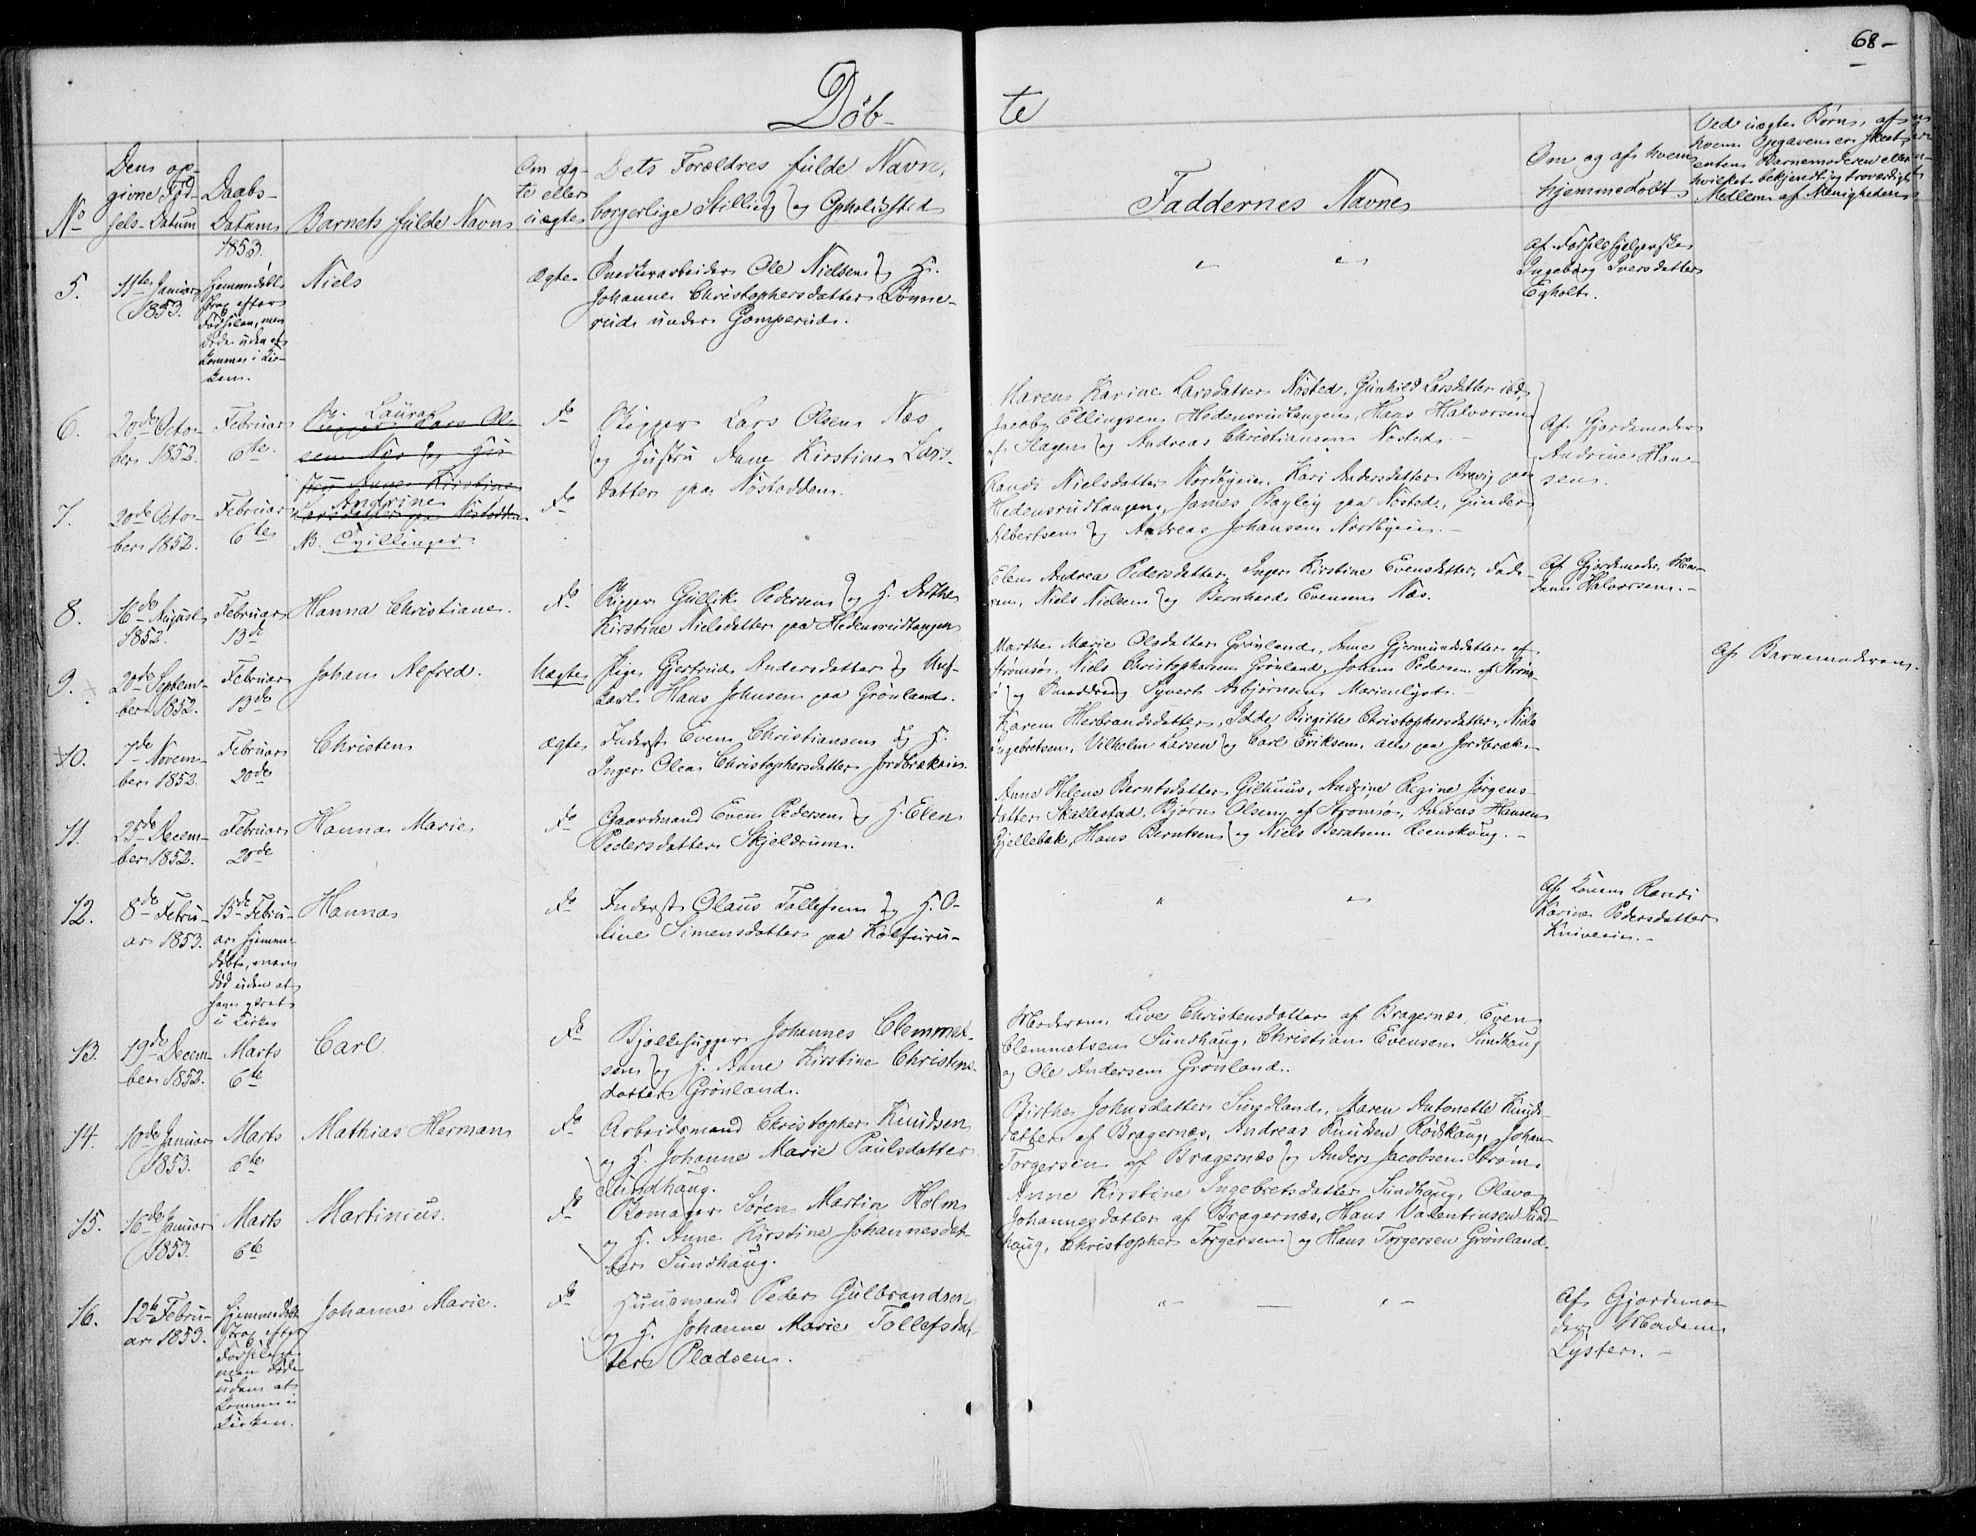 68-
Døb-
te
No
Dens op-
givne Fød-
sels-Datum
Daabs-
Datum
1853.
Barnets fulde Navn
Om æg-
te eller
uægte
Dets Forældres fulde Navn,
borgerlige Stilling og Opholdssted
Faddernes Navne
Om og af hvem
hjemmedøbt
Ved uægte Børn, af
hvem Opgaven er skeet
enten Barnemoderen eller
hvilket bekjendt og troværdigt
Medlem af Menigheden
5.
11te Januar
1853.
Hjemmedøbt
strax efter
Fødselen, men
døde uden at
komme i Kir-
ken.
Niels
Ægte
Snedkerarbeider Ole Nielsen og H.
Johanne Christophersdatter Lønne-
rud under Gomperud.
" "
Af Fødselshjelperske
Ingeborg Iversdatter
Egholt.
6.
20de Octo-
ber 1852.
Februar
6te
Laura
Skipper Lars Ol-
sen Næs og Hu-
stru Anne Kirstine
do
Skipper Lars Olsen Næs
og Hustru Anne Kirstine Lars-
datter paa Nøstodden.
Maren Karine Larsdatter Nøsted, Gunhild Larsdatter ibd,
Jacob Ellingsen Hedensrudtangen, Hans Halvorsen
af Slagen og Andreas Christiansen Nøsted.-
Af Gjordemoder
Andrine Han-
sen.
7.
20de Octo-
ber 1852.
Februar
6te
Andrine
Larsdatter paa Nøstodden
NB. Tvillinger.
do
Randi Nielsdatter Nordbyeie, Kari Andersdatter Brevig paa
Hedensrudtangen, James Bayley paa Nøsted, Gunder
Albertsen og Andreas Johansen Nordbyeie.-
8.
16de August
1852.
Februar
13de
Hanna Christiane.
do
Skipper Gullik Pedersen og H. Dorthe
Kirstine Nielsdatter paa Hedensrudtangen
Elen Andrea Pedersdatter, Inger Kirstine Evensdatter, Fade-
ren, Niels Nielsen og Bernhard Evensen Næs.
Af Gjordemoder
Halvorsen.-
9.
20de Septem-
ber 1852.
Februar
13de
Johan Alfred.
Uægte
Pige Gjertrud Andersdatter og Ung-
karl Hans Johnsen paa Grønland.
Marthe Marie Olsdatter Grønland, Anne Gjermundsdatter af
Strømsø, Niels Christophersen Grønland, Johan Pedersen af Strøms-
ø og Syvert Asbjørnsen Marienlyst.-
Af Barnemoderen.
10.
7de Novem-
ber 1852.
Februar
20de
Christen
Ægte
Inderst Even Christiansen og H.
Inger Olea Christophersdatter Jordbrækeie.
Karen Herbrandsdatter, Idde Birgitte Christophersdatter, Niels
Ingebretsen, Vilhelm Larsen og Carl Eriksen, alle paa Jordbræk.-
11.
25de Decem-
ber 1852.
Februar
20de
Hanna Marie
do
Gaardmand Even Pedersen og H. Elen
Pedersdatter Skjeldrum.
Anne Helene Berntsdatter Gilhuus, Andrine Regine Jørgens-
datter Skallestad, Bjørn Olsen af Strømsø, Andreas Hansen
Gjellebæk, Hans Berntsen og Niels Berntsen Reenskoug.-
12.
8de Febru-
ar 1853.
15de Febru-
ar hjemme-
døbt, men
død uden at
have været
i Kirke
Hanna
do
Inderst Olaus Tollefsen og H. O-
line Simensdatter paa Kolfuru-
" "
Af Konen Randi
Karine Pedersdatter
Kniveeie.-
13.
19de Decem-
ber 1852.
Marts
6te
Carl
do
Bjælkehugger Johannes Clemmet-
sen og H. Anne Kirstine Christens-
datter Grønland.
Moderen, Live Christensdatter af Bragernæs, Even
Clemmetsen Sundhaug, Christian Evensen Sundhaug
og Ole Andersen Grønland.
14.
10de Januar
1853.
Marts
6te
Mathias Herman
do
Arbeidsmand Christopher Knudsen
og H. Johanne Marie Paulsdatter
Sundhaug.
Birthe Johnsdatter Sundland, Maren Antonette Knuds-
datter af Bragernæs, Andreas Knudsen Rødskoug, Johan
Torgersen af Bragernæs og Anders Jacobsen Strøm.
15.
16de Januar
1853.
Marts
6te
Martinius.
do
Skomager Søren Martin Holm
og H. Anne Kirstine Johannesdat-
ter Sundhaug.
Anne Kirstine Ingebretsdatter Sundhaug, Olava
Johannesdatter af Bragernæs, Hans Valentinsen Sund-
haug, Christopher Torgersen og Hans Torgersen Grønland.
16.
12te Febru-
ar 1853.
Hjemmedøbt
strax efter
Fødselen
men døde
uden at
komme i
Kirken.
Johanne Marie.
do
Huusmand Peder Gulbrandsen
og H. Johanne Marie Tollefsdat-
ter Pladsen.
" - — " -
Af Gjordemo-
der Madam
Lysten.-